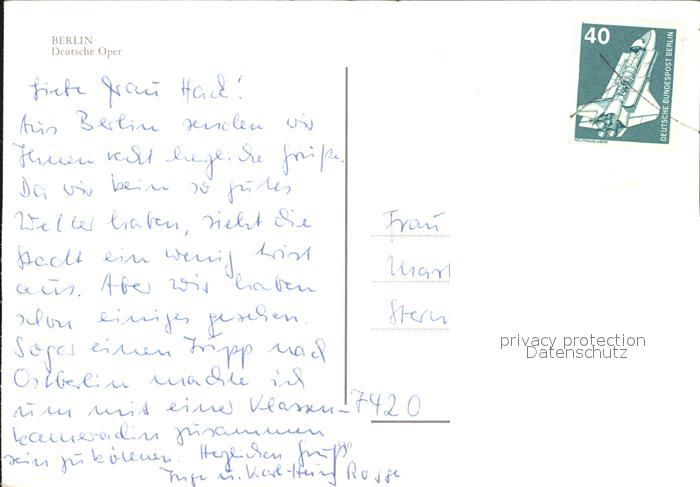 BERLIN
Deutsche Oper
Liebe Frau Hack!
Aus Berlin senden wir
Ihnen recht herzliche Grüße.
Da wir kein so gutes
Wetter haben, sieht die
Stadt ein wenig trist
aus. Aber wir haben
schon einiges gesehen.
Sogar einen Tripp nach
Ostberlin machte ich
um mit einer Klassen-
kameradin zusammen
sein zu können. Herzlichen Gruß
Inge u. Karl-Heinz
40
DEUTSCHE BUNDESPOST BERLIN
WELTRAUMLABOR
Frau
Mar
Stern
7420
privacy protection
Datenschutz